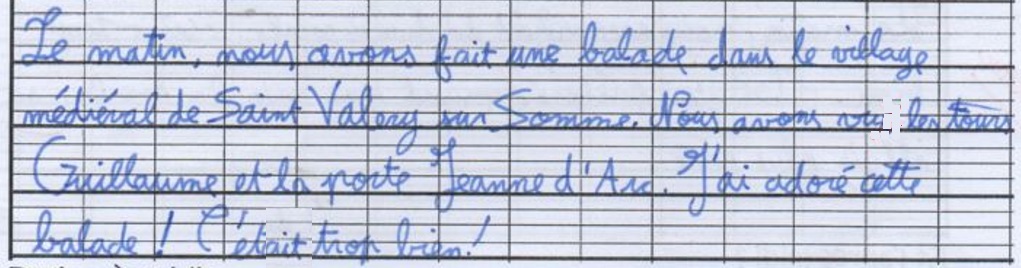 Le matin, nous avons fait une balade dans le village
médiéval de Saint Valery sur Somme. Nous avons vu les tours
Guillaume et la porte Jeanne d'Arc. J'ai adoré cette
balade ! C'était trop bien !